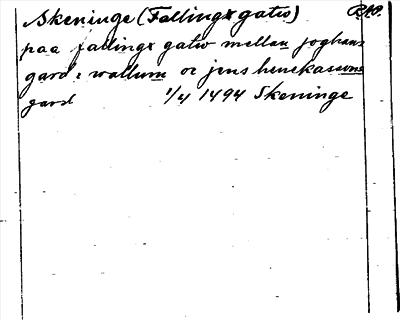 Skeninge (Fallingx gatw) RAP.
paa fallingx gatw mellan joghans
gard i wallum oc jens henekassons
gard 1/4 1494 Skeninge